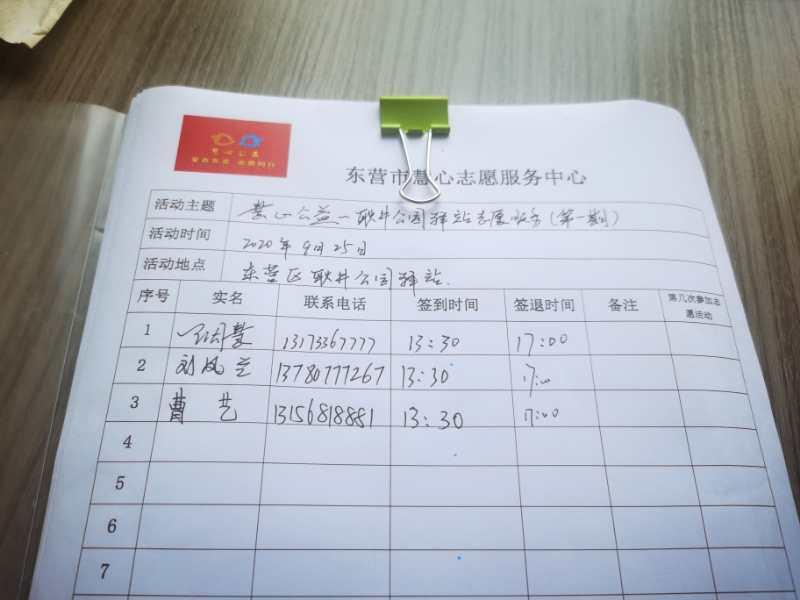 慧心公益
东营市慧心志愿服务中心
活动主题 慧心公益—职井公园驿站志愿服务(第一期)
活动时间 2020年9月25日
活动地点 东营区职井公园驿站.
序号 实名 联系电话 签到时间 签退时间 备注 第几次参加志愿活动
1 13173367777 13:30 17:00
2 刘凤兰 13780777267 13:30 17:00
3 曹艺 13156818881 13:30 17:00
4
5
6
7